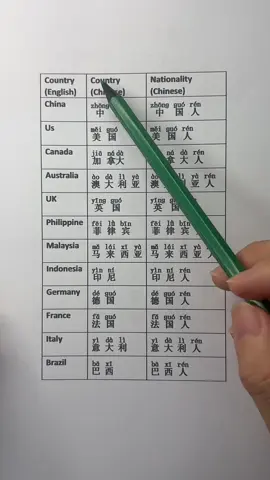 Country Country Nationality
(English) (Chinese) (Chinese)
China zhōng zhōng guó rén
中 中 国 人
Us měi guó měi guó rén
美 国 美 国 人
Canada jiā ná dà ná dà rén
加 拿 大 拿 大 人
Australia ào dà lì yà ào dà lì
澳 大 利 亚 澳 大 利 亚 人
UK yīng guó yīng guó
英 国 英 国
Philippine fēi lǜ bīn fēi lǜ bīn
菲 律 宾 菲 律 宾
Malaysia mǎ lái xī yà mǎ lái xī yà
马 来 西 亚 马 来 西 亚
Indonesia yìn ní yìn ní rén
印 尼 印 尼 人
Germany dé guó dé guó rén
德 国 德 国 人
France fǎ guó fǎ guó rén
法 国 法 国 人
Italy yì dà lì yì dà lì rén
意 大 利 意 大 利 人
Brazil bā xī bā xī rén
巴 西 巴 西 人